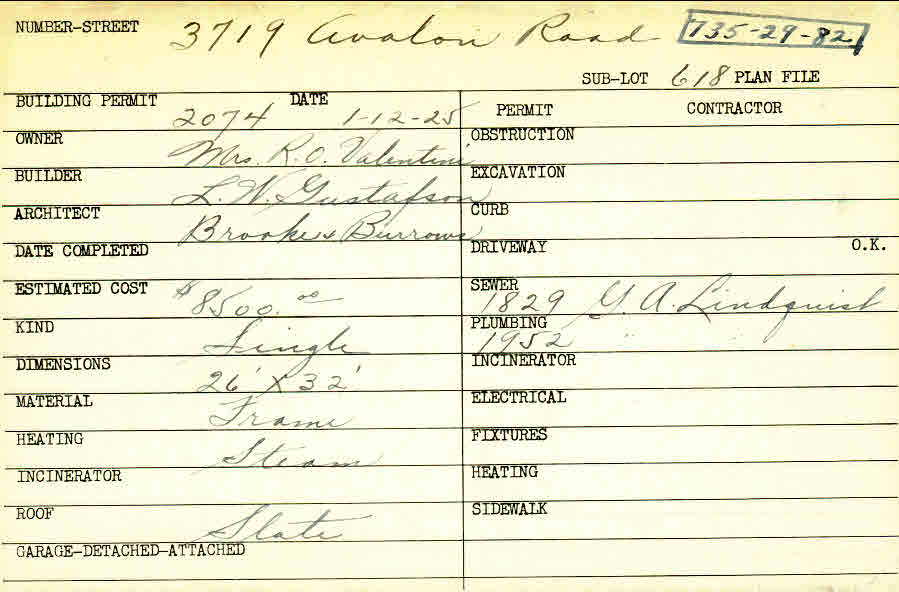 NUMBER-STREET 3719 Avalon Road 735-29-82
SUB-LOT 618 PLAN FILE
BUILDING PERMIT 2074 DATE 1-12-25
OWNER Mrs. R. O. Valentini
BUILDER L. W. Gustafson
ARCHITECT Brooke & Burrows
DATE COMPLETED
ESTIMATED COST $8500.00
KIND Single
DIMENSIONS 26' X 32'
MATERIAL Frame
HEATING Steam
INCINERATOR
ROOF Slate
GARAGE-DETACHED-ATTACHED
PERMIT CONTRACTOR
OBSTRUCTION
EXCAVATION
CURB
DRIVEWAY O.K.
SEWER 1829 G. A. Lindquist
PLUMBING 1952 " "
INCINERATOR
ELECTRICAL
FIXTURES
HEATING
SIDEWALK